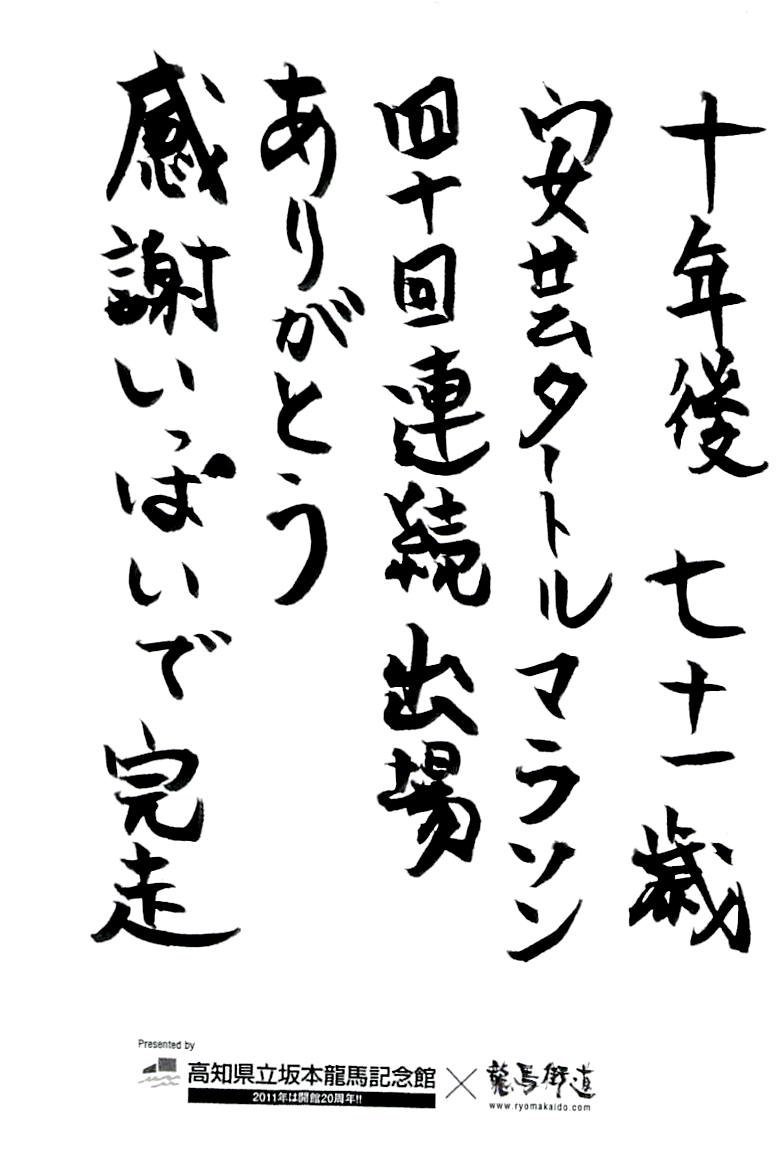 十年後　七十一歳
安芸タートルマラソン
四十回連続出場
ありがとう
感謝いっぱいで完走
Presented by
高知県立坂本龍馬記念館
2011年は開館20周年!!
×
龍馬街道
www.ryomakaido.com